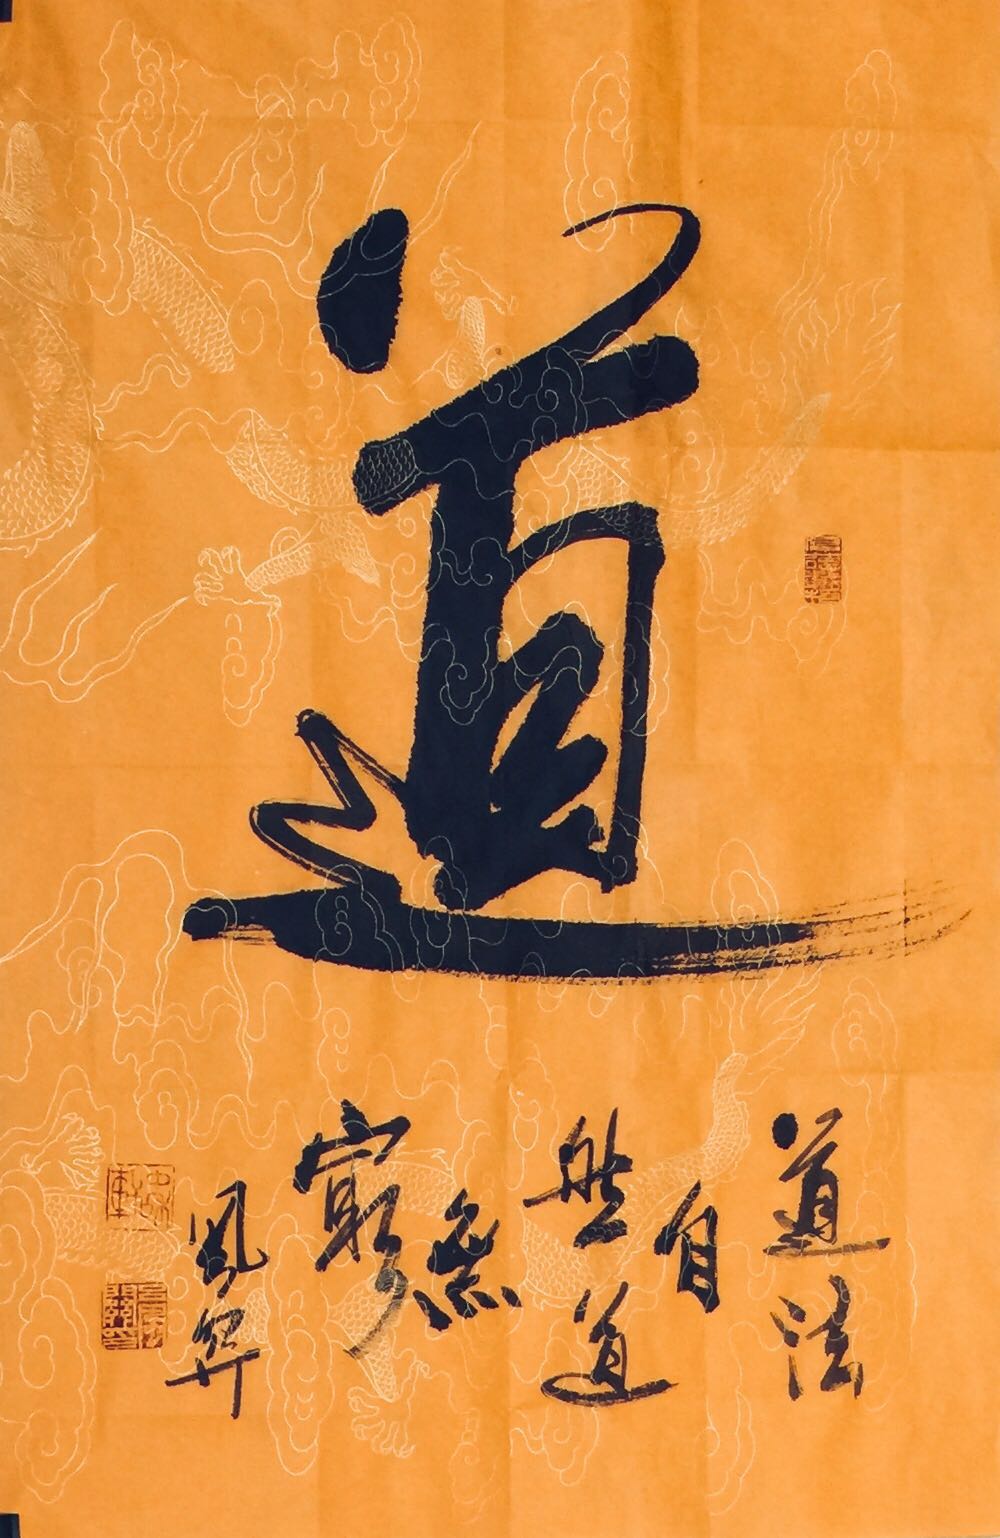 道
道法
自
然道
無
窮